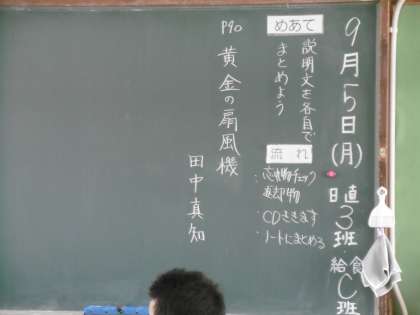 9月15日(月)
日直 3班
給食 C班
めあて
説明文を各自で
まとめよう
流れ
・忘れ物チェック
返却物
・CDききます
・ノートにまとめる
P90
黄金の扇風機
田中真知